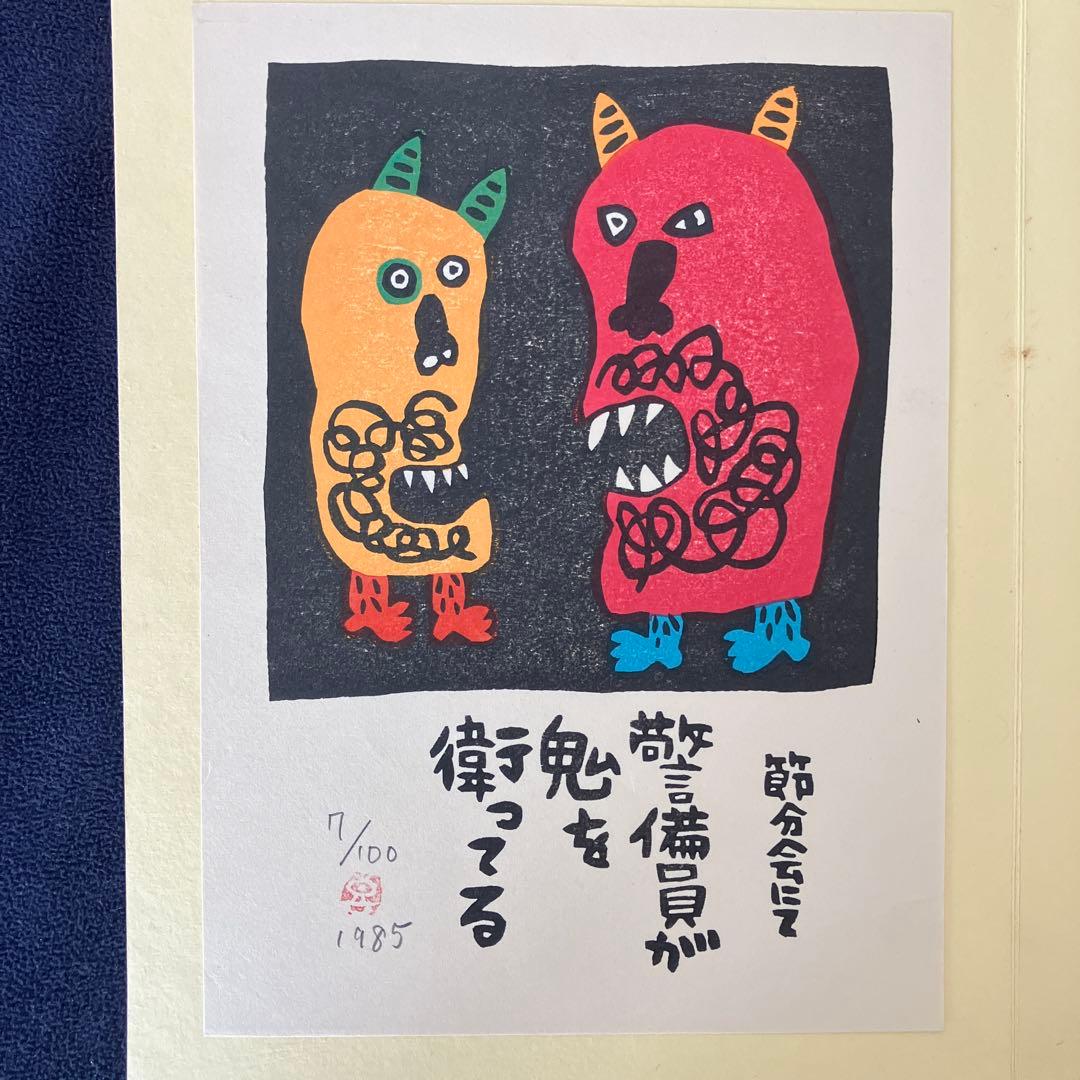 節分会にて
警備員が
鬼を
衛ってる
7/100
1985